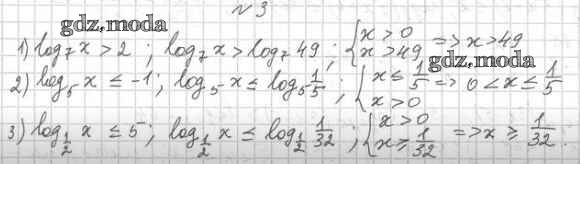 №3
gdz.moda
1) log₇x > 2 ; log₇x > log₇49 ; { x > 0 x > 49 => x > 49
gdz.moda
2) log₅x ≤ -1 ; log₅x ≤ log₅ 1/5 ; { x ≤ 1/5 x > 0 => 0 < x ≤ 1/5
3) log_{1/2} x ≤ 5 ; log_{1/2} x ≤ log_{1/2} 1/32 ; { x > 0 x ≥ 1/32 => x ≥ 1/32.